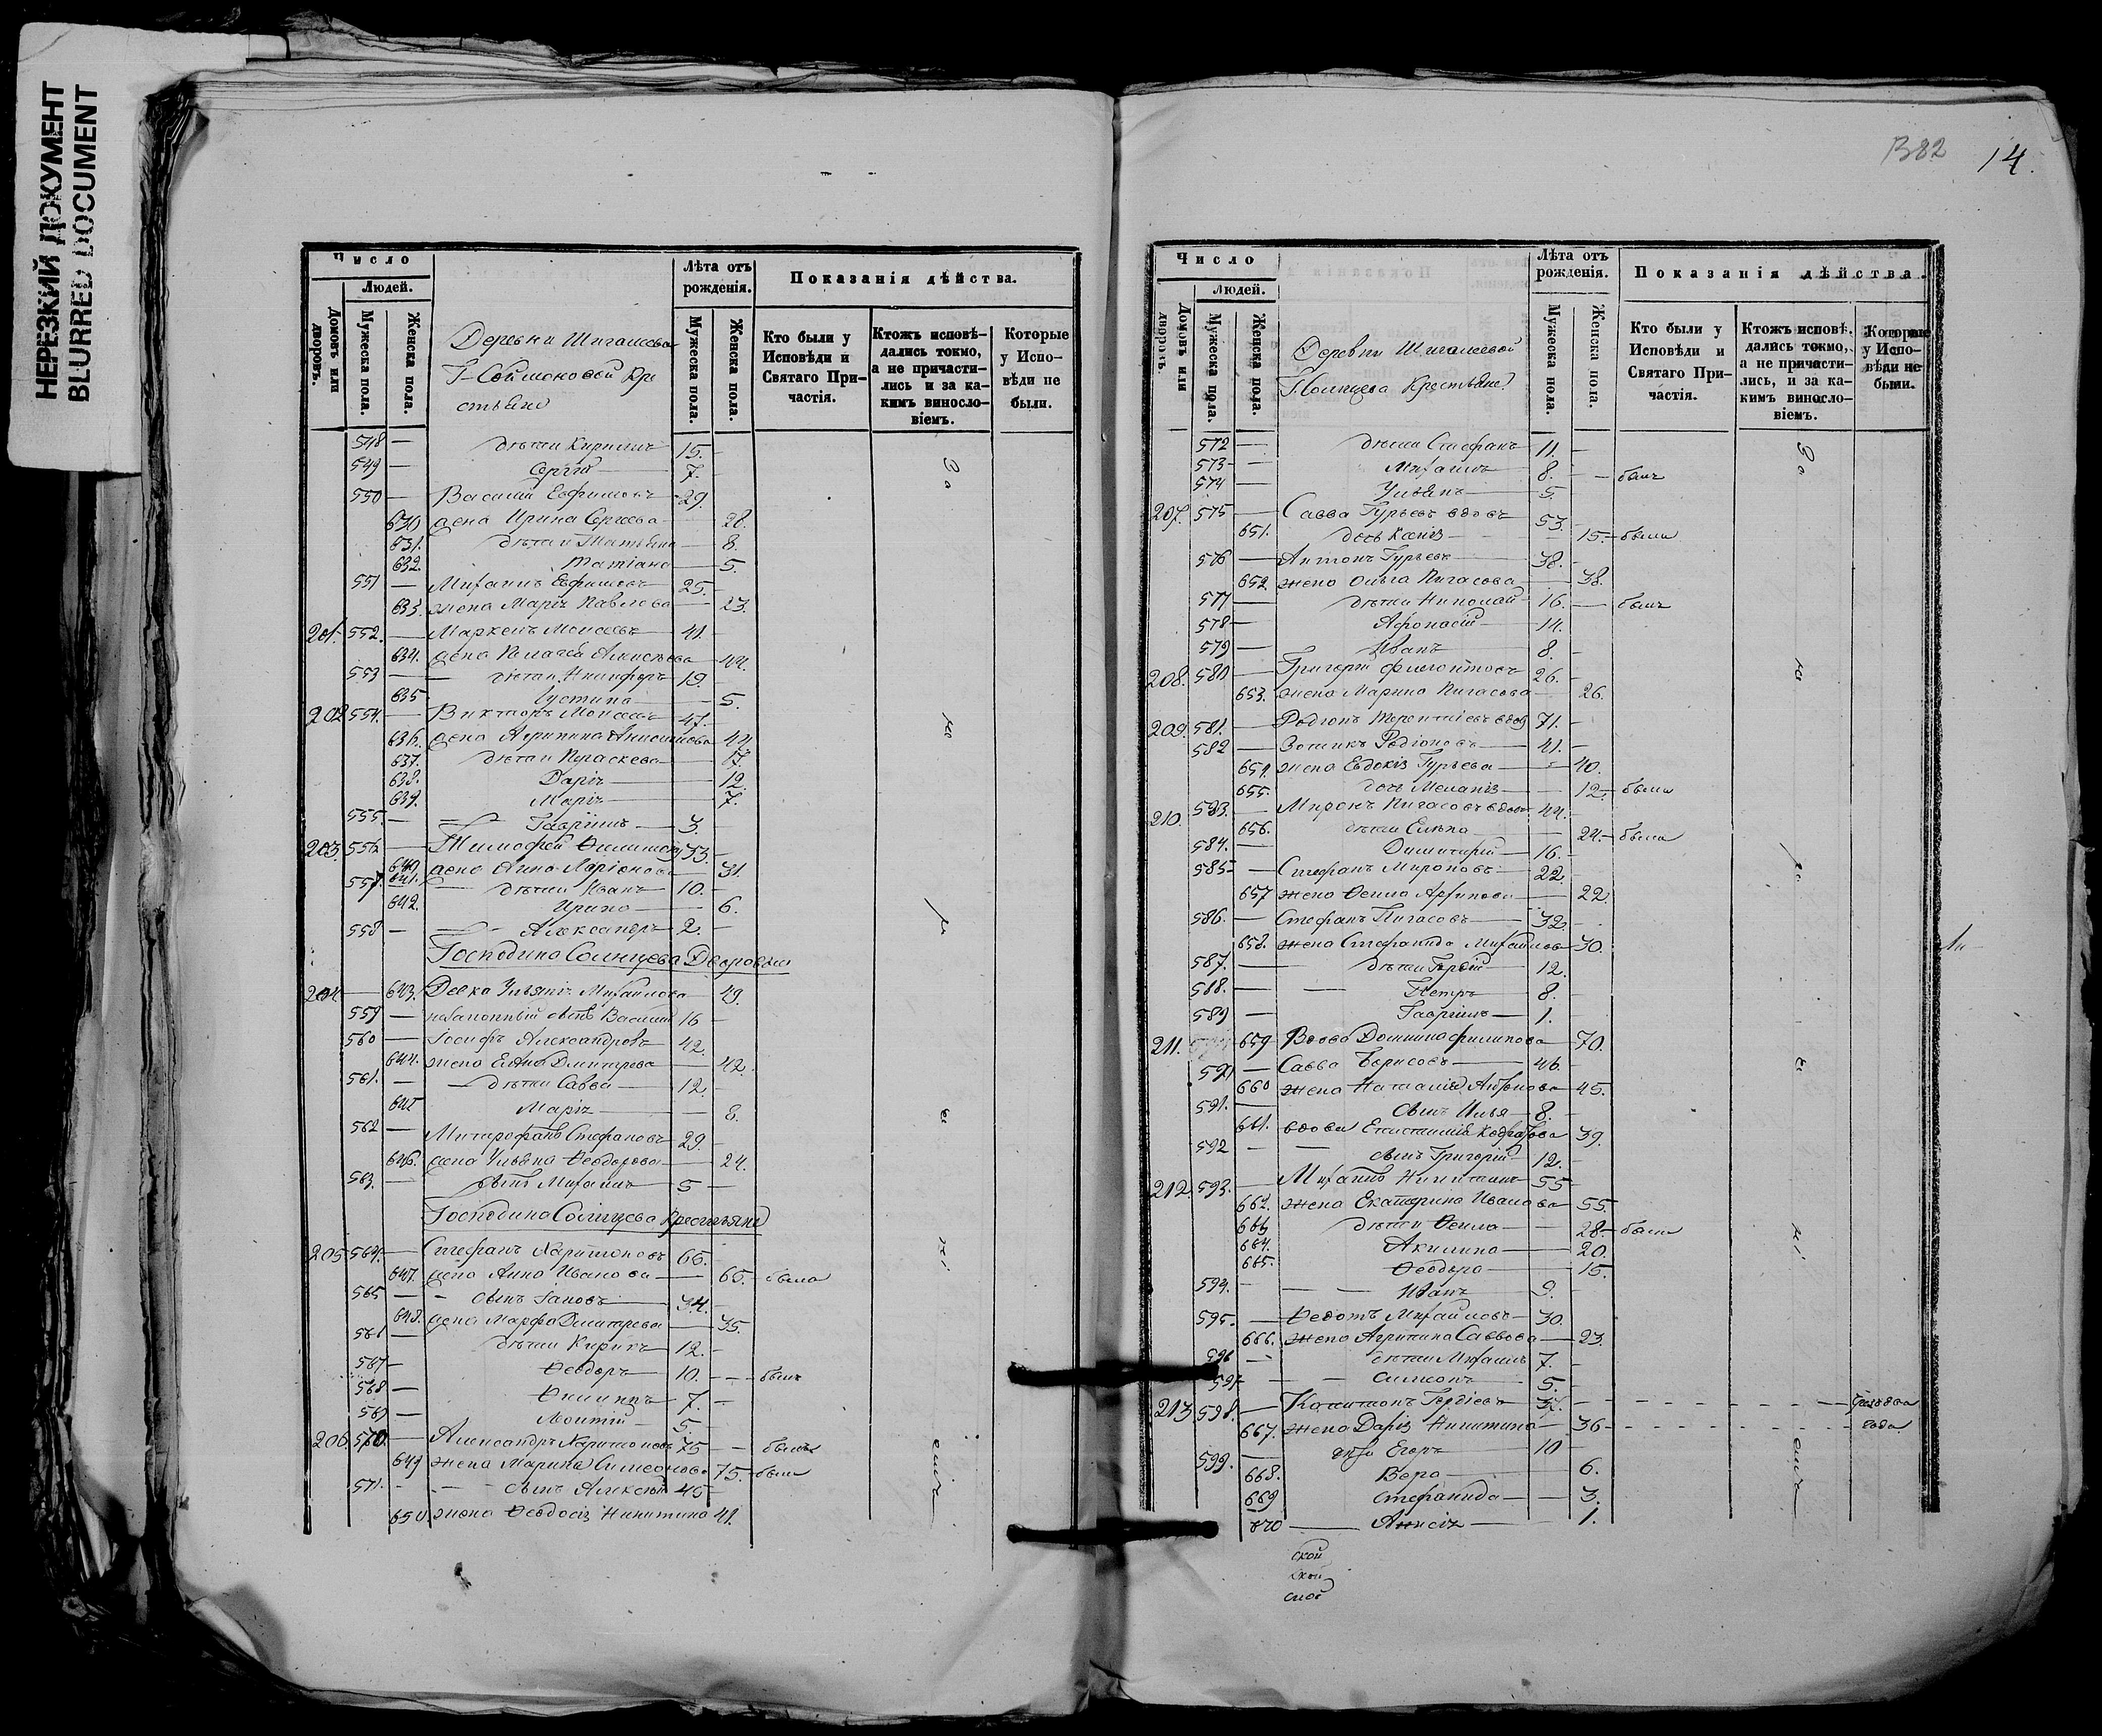 НЕРЕЗКИЙ ДОКУМЕНТ
BLURRED DOCUMENT
Число
Людей.
Домовъ или дворовъ.
Мужеска пола.
Женска пола.
Деревни Шигалеева
Крестьяне
Лѣта отъ рожденія.
Мужеска пола.
Женска пола.
Показанія дѣйства.
Кто были у Исповѣди и Святаго Причастія.
Ктожъ исповѣдались токмо, а не причастились и за какимъ винословіемъ.
Которые у Исповѣди не были.
548 — дѣти Кириллъ 15. —
549 — Сергій 7. —
550 — Василій Ефимовъ 29.
630 жена Ирина Сергеева — 28.
631. дѣти Татьяна — 8.
632. Татіана — 5.
551 — Михаилъ Ефимовъ 25. —
633. жена Марія Павлова — 23.
201. 552. — Маркелъ Моисеевъ 41. —
634. жена Пелагея — 44.
553 — дѣти Никифоръ 19.
635 Іустина — 5.
202 554. — Викторъ Моисеевъ 47. —
636. жена Агрипина — 44.
637. дѣти Параскева — 17.
638. Дарія — 12.
639. Марія — 7.
555. — Гавріилъ 3. —
203. 556 — Тимофей Филиповъ 33. —
640. жена Анна Ларіонова — 31.
557. 641. — дѣти Иванъ 10. —
642. Ирина — 6.
558 — Александръ 2. —
Господина Солнцева Дворовые
204 — 643. Девка Ульянія Михайлова — 49.
559 — незаконный сынъ Василій 16 —
560 — Іосифъ Александровъ 42.
644. жена Елена Димитрева — 42.
561. — дѣти Савва 12. —
645 Марія — 8.
562 — Митрофанъ Стефановъ 29. —
646. жена Ульяна Ѳеодорова — 24.
563. — сынъ Михаилъ 5 —
Господина Солнцева Крестьяне
205 564. — Стефанъ Харитоновъ 66. —
647. жена Анна Иванова — 65. — была
565 — сынъ Іаковъ 34. —
648. жена Марфа Димитрева — 35.
566 — дѣти Кирикъ 12. —
567 — Ѳеодоръ 10. — — былъ
568 — Филиппъ 7. —
569 — 5. —
206 570. — Александръ Харитоновъ 75 — — былъ
649 жена Марина Симеонова 75. — была
571. — сынъ Алексѣй 45 —
650 жена Ѳеодосія Никитина 41.
В82 14.
Число
Людей.
Домовъ или дворовъ.
Мужеска пола.
Женска пола.
Деревни Шигалеевой
Г. Солнцева Крестьяне
Лѣта отъ рожденія.
Мужеска пола.
Женска пола.
Показанія дѣйства.
Кто были у Исповѣди и Святаго Причастія.
Ктожъ исповѣдались токмо, а не причастились, и за какимъ винословіемъ.
Которые у Исповѣди не были.
572 — дѣти Стефанъ 11. —
573 — Михаилъ 8. — — былъ
574 — Ульянъ 5.
207. 575 — Савва Гурьевъ вдовъ 53.
651. дочь Ксенія — 15. — была
576 — Антонъ Гурьевъ 38. —
652 жена Ольга Пигасова — 38.
577 — дѣти Николай 16. — былъ
578 — Афонасій 14.
579 — Иванъ 8. —
208. 580 — Григорій 26. —
653. жена Марина Пигасова — 26.
209. 581. — Родіонъ Терентіевъ вдов 71. —
582 — Зотикъ Родіоновъ 41. —
654. жена Евдокія Гурьева — 40.
655. дочь Меланія — 12. — была
210. 583. — Миронъ Пигасовъ вдовъ 44. —
656. дѣти Елена — 24. — была
584. — Димитрій 16. —
585 — Стефанъ Мироновъ 22.
657 жена Ѳекла — 22.
586. — Стефанъ Пигасовъ 32. —
658. жена Стефанида Михайлова 30.
587. — дѣти Гордій 12.
588. — Петръ 8. —
589 — Гавріилъ 1. —
211. 659 Вдова Домнина Филипова 70.
590 — Савва Борисовъ 46. —
660 жена Наталія 45.
591. — сынъ Илья 8. —
661. вдова 39.
592 — сынъ Григорій 12. —
212. 593. — Михаилъ Никитинъ 55 —
662. жена Екатерина Иванова 55.
663 дѣти Ѳекла — 28. — была
664. Акилина — 20.
665. Ѳеодора — 15.
594. — Иванъ 9. —
595. — Ѳедотъ Михайловъ 30. —
666. жена Агрипина Саввова — 23.
596 — дѣти Михаилъ 7. —
597 — Симеонъ 5. —
213 598. — Капитонъ Гордіевъ 37. —
667. жена Дарія Никитина — 36
599. — Егоръ 10
668. Вера — 6.
669 Стефанида — 3.
670 Анисія — 1.
ской
ской